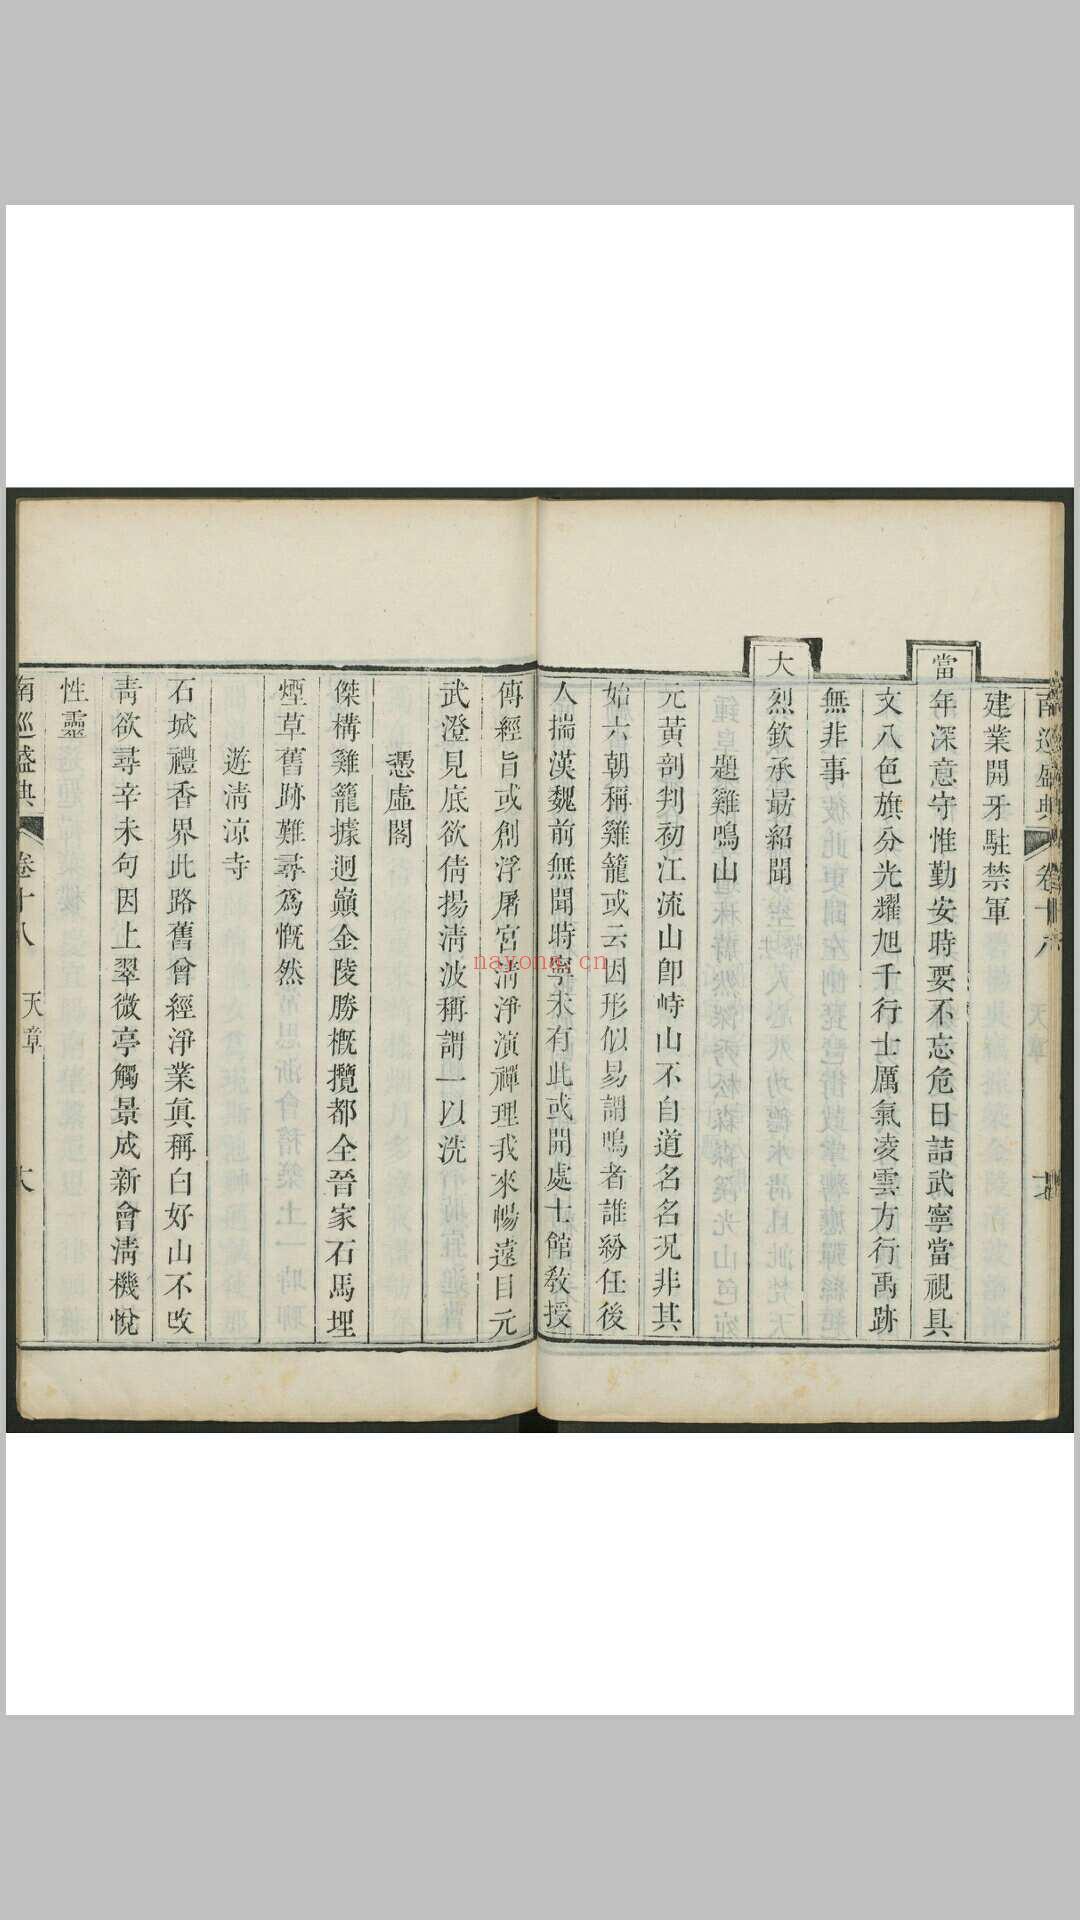 南巡盛典 卷十八
建業開牙駐禁軍
當年深意守惟勤安時要不忘危日詰武寧當視具
文八色旗分光耀旭千行士厲氣凌雲方行禹跡
無非事
大烈欽承最紹聞
題雞鳴山
元黃剖判初江流山卽峙山不自道名名況非其
始六朝稱雞籠或云因形似易謂鳴者誰紛任後
人揣漢魏前無聞時寧未有此或開處士館敎授
傳經旨或創浮屠宮淸淨演禪理我來暢遠目元
武澄見底欲倩揚淸波稱謂一以洗
憑虛閣
傑構雞籠據迥巔金陵勝概攬都全晉家石馬埋
煙草舊跡難尋爲慨然
遊淸涼寺
石城禮香界此路舊曾經淨業眞稱白好山不改
靑欲尋辛未句因上翠微亭觸景成新會淸機悅
性靈
南巡盛典 卷十八 天章
nayona.cn